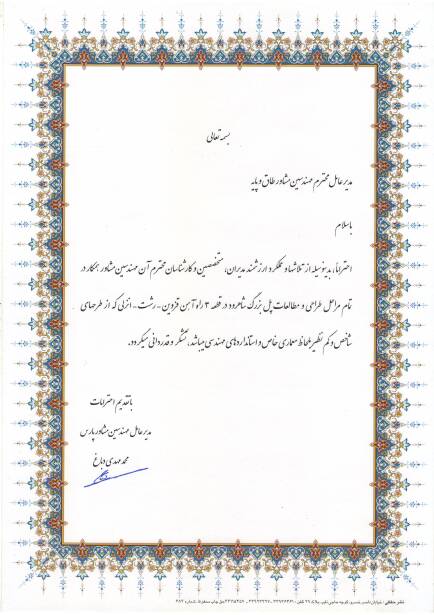 بسمه تعالی
مدیر عامل محترم مهندسین مشاور طاق و پایه
با سلام
احتراماً، بدینوسیله از تلاشها و عملکرد ارزشمند مدیران، متخصصین و کارشناسان محترم آن مهندسین مشاور همکار در
تمام مراحل طراحی و مطالعات پل بزرگ شاهرود در قطعه ۳ راه آهن قزوین - رشت - انزلی که از طرحهای
شاخص و کم نظیر بلحاظ معماری خاص و استانداردهای مهندسی میباشد، تشکر و قدردانی میگردد.
با تقدیم احترامات
مدیر عامل مهندسین مشاور پارس
محمد مهدی دباغ